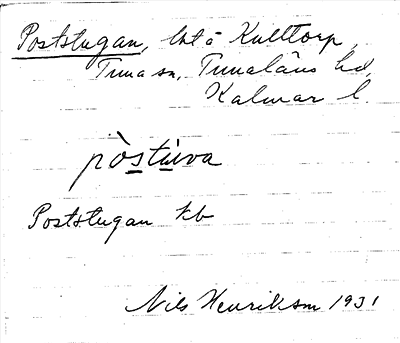 Poststugan, lht å Kulltorp,
Tuna sn, Tunaläns hd,
Kalmar l.
pòstúva
Poststugan kb
Nils Henrikson 1931